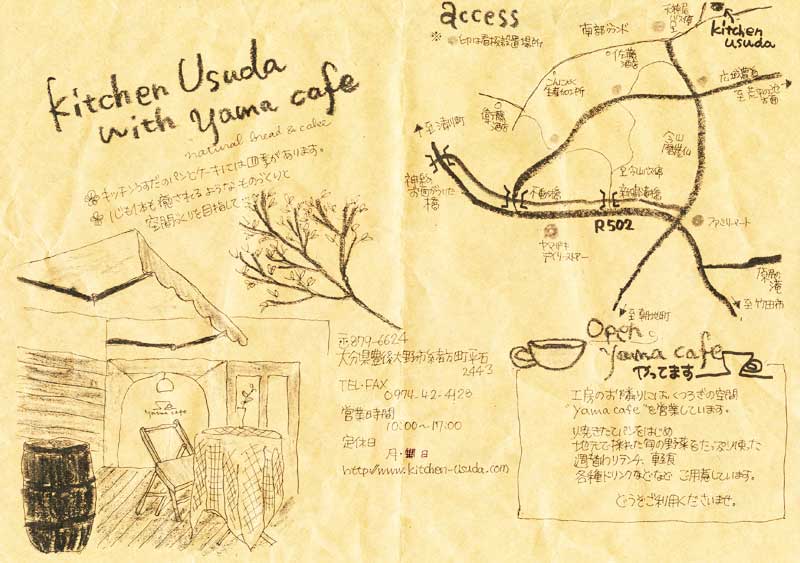 kitchen Usuda
with yama cafe
natural bread & cake
キッチンうすだのパンとケーキには四季があります。
心も体も癒されるようなものづくりと
空間づくりを目指して
yama cafe
〒879-6624
大分県豊後大野市緒方町平石
2443
TEL・FAX
0974-42-4128
営業時間
10:00〜17:00
定休日
月・日
http://www.kitchen-usuda.com
access
※ 印は看板設置場所
南部グランド
kitchen
usuda
佐藤
酒店
こんにゃく
生産加工所
衛藤
酒店
至清川町
至
今山
磨崖仏
神路
橋
不動橋
R502
ファミリーマート
ヤマザキ
デイリーストアー
原尻の
滝
至竹田市
至朝地町
Open
yama cafe
やってます
工房のお隣りにはくつろぎの空間
"yama cafe"を営業しています。
焼きたてパンをはじめ
地元で採れた旬の野菜をたっぷり使った
週替わりランチ、軽食
各種ドリンクなどなど ご用意しています。
どうぞご利用くださいませ。